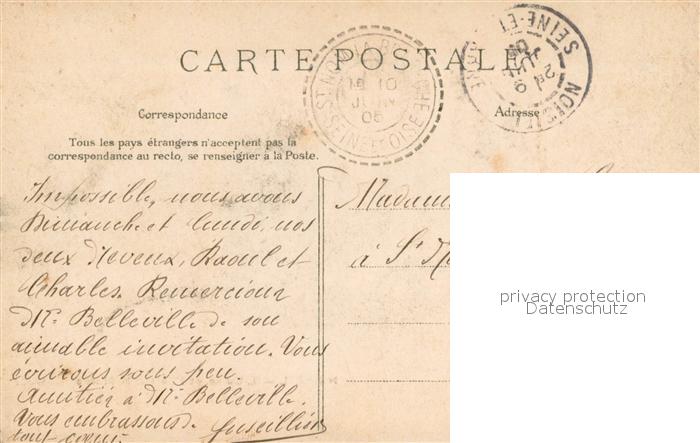 CARTE POSTALE
ST NOM LA BRETECHE
10
JUIN
05
SEINE ET OISE
SEINE-ET
Correspondance
Adresse
Tous les pays étrangers n'acceptent pas la
correspondance au recto, se renseigner à la Poste.
Impossible, nous avons
Dimanche et lundi, nos
deux Neveux, Raoul et
Charles. Remercions
Mr. Belleville de son
aimable invitation. Vous
écrirons sous peu.
Amitiés à Mr Belleville.
Vous embrassons de
tout coeur.
Madam
à St
privacy protection
Datenschutz